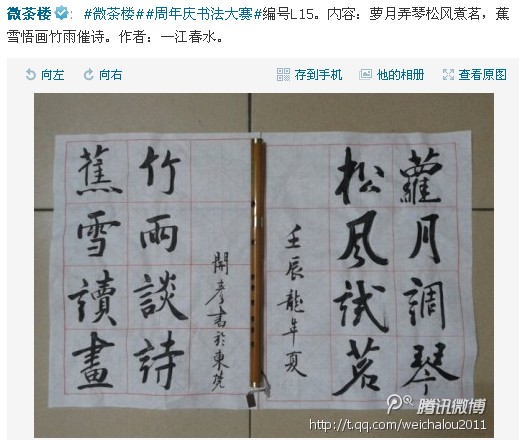 微茶楼：#微茶楼##周年庆书法大赛#编号L15。内容：萝月弄琴松风煮茗，蕉
雪悟画竹雨催诗。作者：一江春水。
向左 向右 存到手机 他的相册 查看原图
蘿月調琴
松風試茗
壬辰龍年夏
開彥書於東莞
竹雨談詩
蕉雪讀畫
腾讯微博
http://t.qq.com/weichalou2011